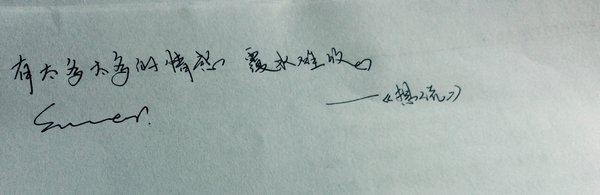 有太多太多的情感 覆水难收
——《想流》
Summer.